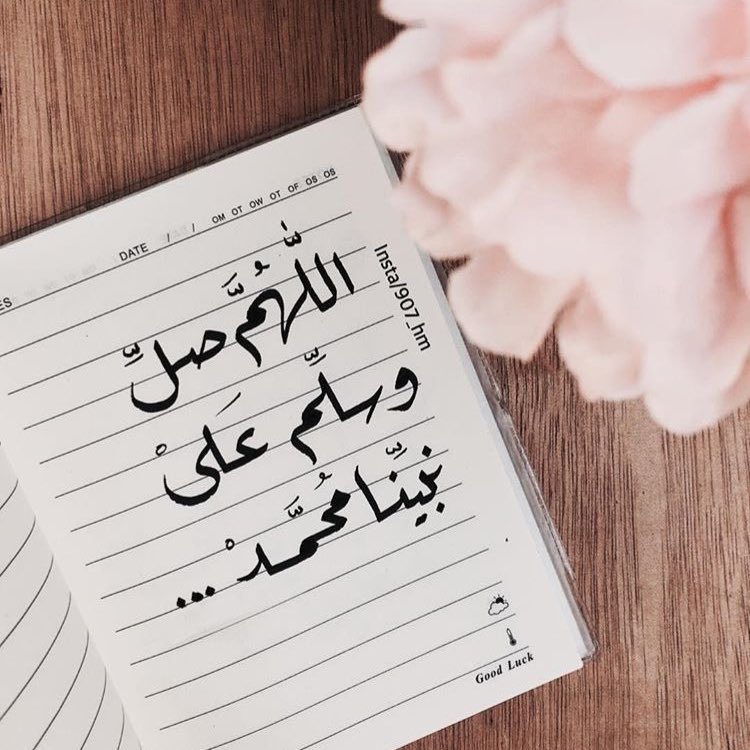 DATE / / OM OT OW OT OF OS OS
اللّٰهُمَّ صلِّ
وسلِّم عَلىْ
نبيِّنا مُحمَّدْ ...
Insta/907_hm
Good Luck